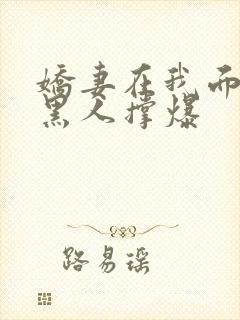 娇妻在我面
黑人撑爆
路易瑶